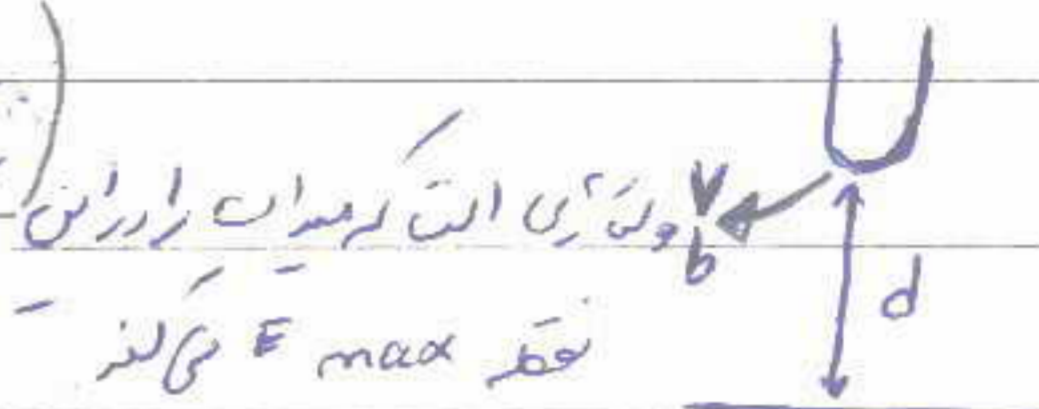 V_b ولتاژی است که میدان را در این
نقطه E max می‌کند
d